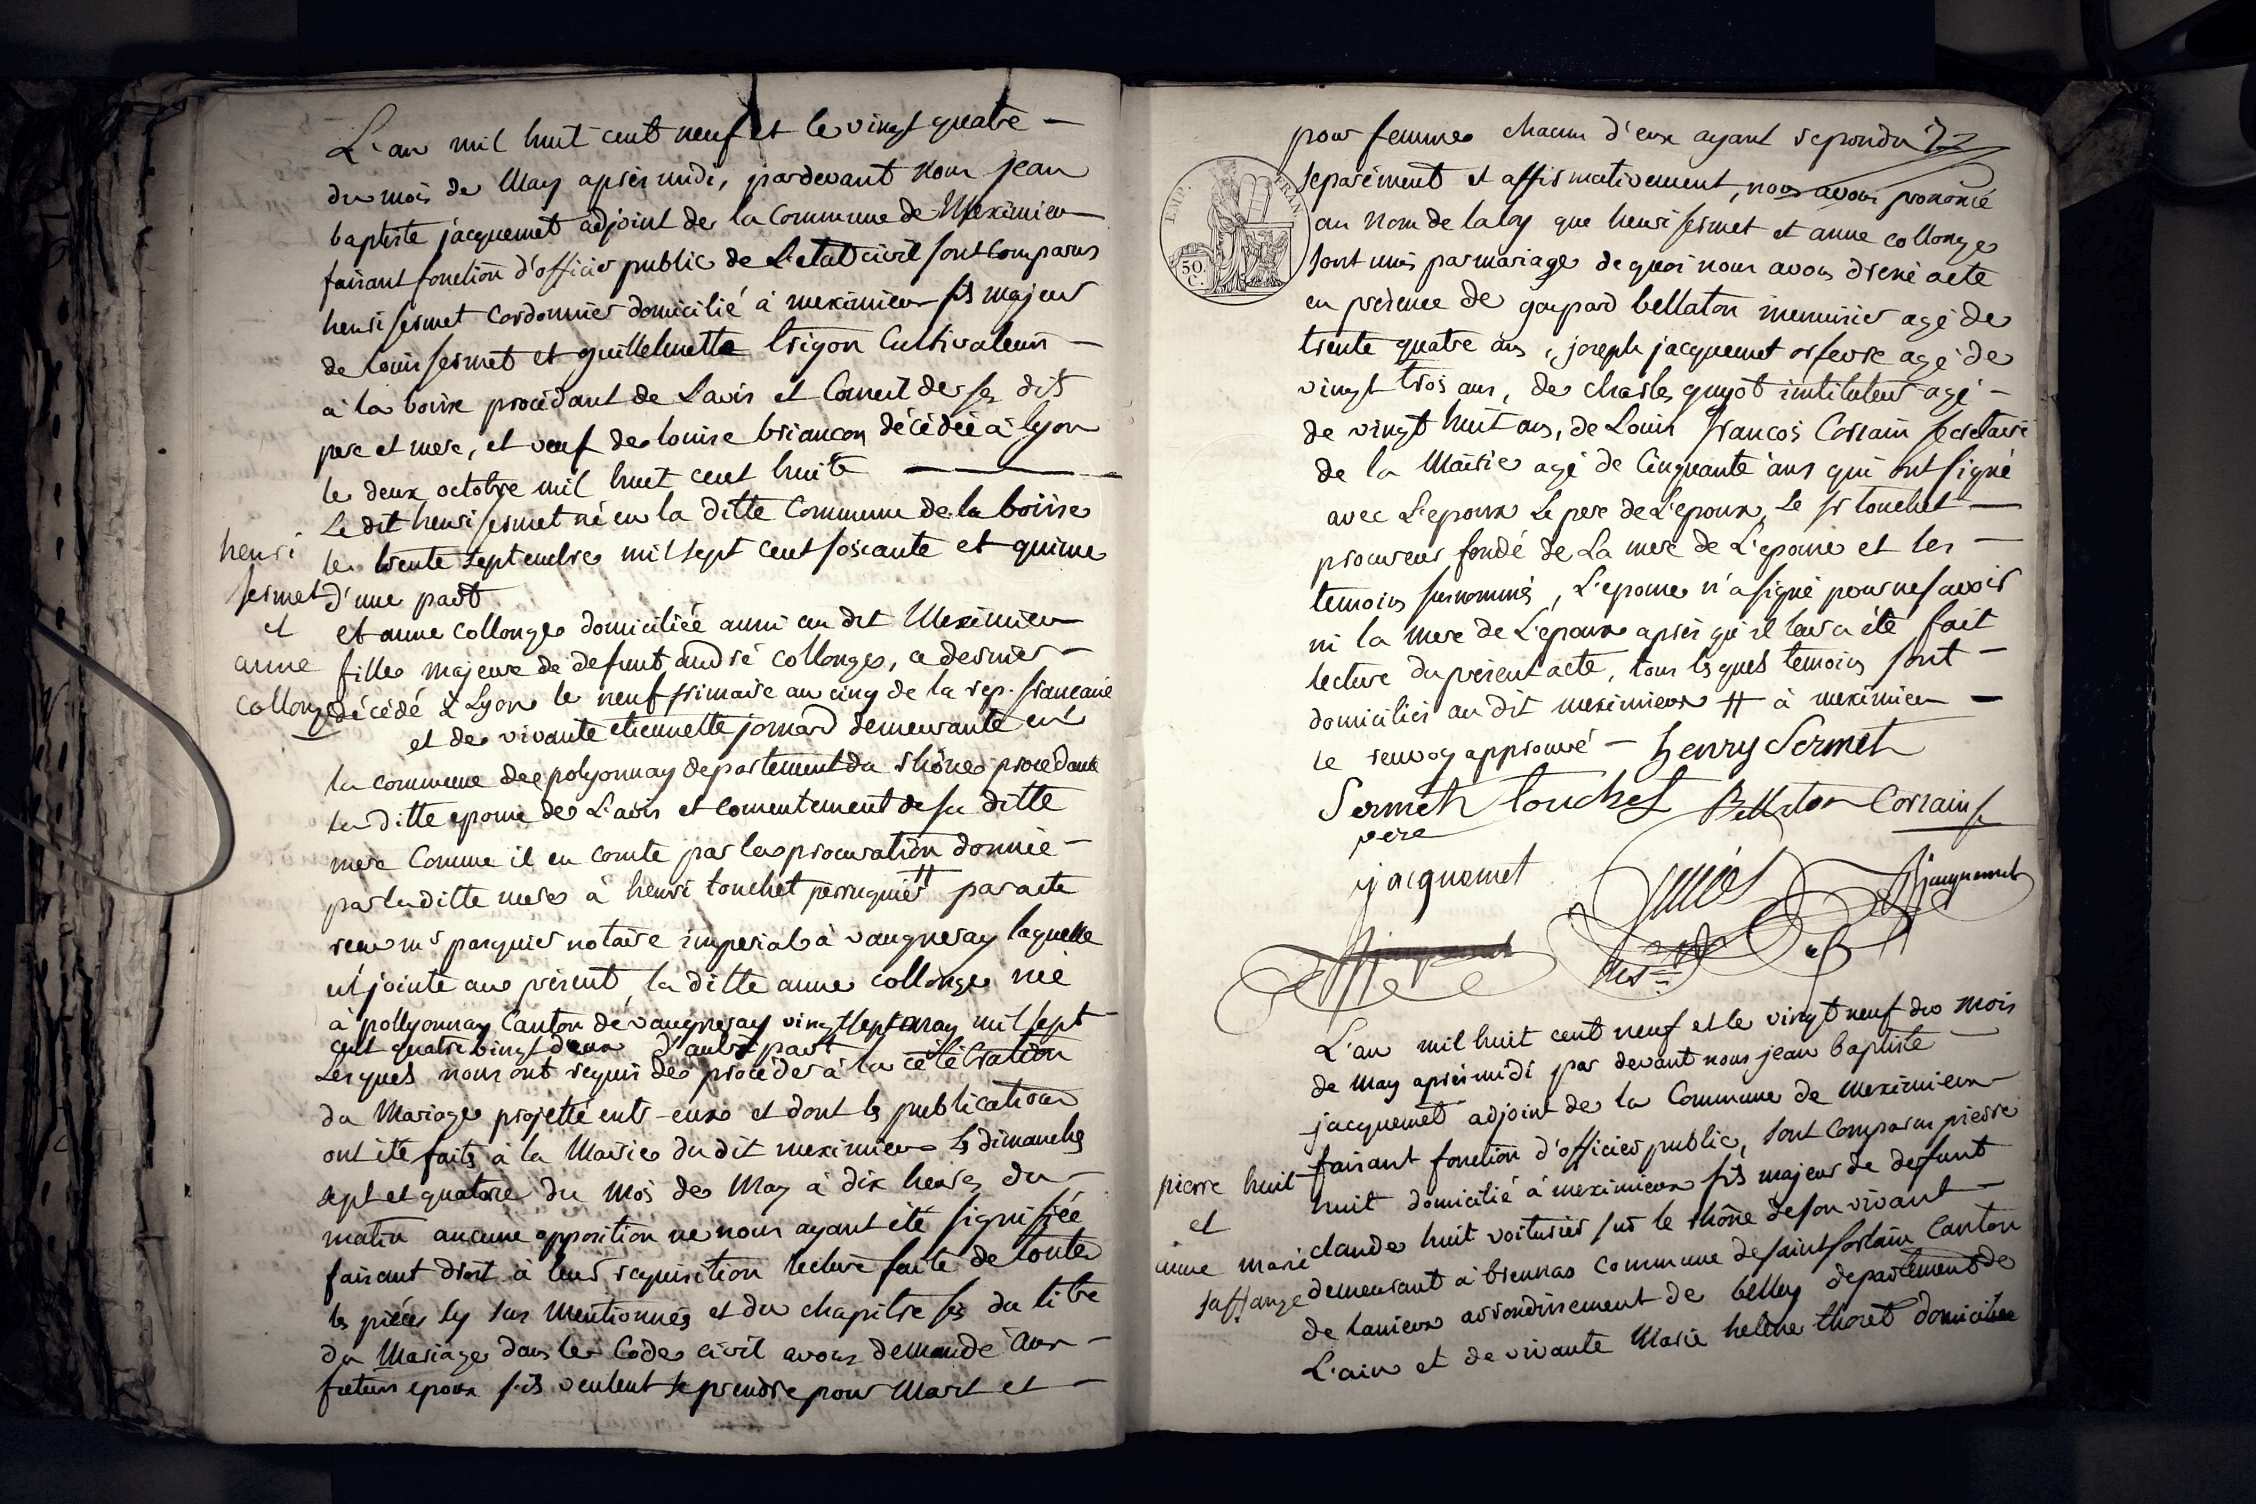 L'an mil huit cent neuf et le vingt quatre –
du mois de May après midi, pardevant nous jean
baptiste jacquemet adjoint de la Commune de Meximieu
faisant fonction d'officier public de L'etat civil sont comparus
henri sermet cordonnier domicilié à meximieu fils majeur
de louis sermet et guillelmette trigon Cultivateurs –
à la boisse procédant de Lavis et Conseil de ses dits
pere et mere, et veuf de louise briancon décédée à lyon
le deux octobre mil huit cent huit –
Le dit henri sermet né en la ditte Commune de la boisse
le trente septembre mil sept cent soixante et quinze
d'une part
henri
sermet
et
anne
collonge
et anne collonge domiciliée aussi au dit Meximieu
fille majeure de defunt andré collonge, ce dernier –
décédé à Lyon le neuf frimaire an cinq de la rep. francaise
et de vivante etiennette jomard demeurante en
la commune de polyonnay departement du rhône procedant
la ditte epouse de L'avis et consentement de sa ditte
mere Comme il en conste par la procuration donnée –
par la ditte mere à henri touchet perruquier # par acte
recu mr pasquier notaire imperial à vaugneray laquelle
est jointe au présent, la ditte anne collonge née
à pollyonnay Canton de vaugneray vingt sept may mil sept
cent quatre vingt deux d'autre part
Lesquels nous ont requis de procéder à la célébration
du Mariage projetté entr-eux et dont les publications
ont été faites à la Mairie du dit meximieu les dimanches
sept et quatorze du mois de May à dix heures du –
matin aucune opposition ne nous ayant été signifiée
faisant droit à leur requisition lecture faite de toute
les pièces cy sus mentionnés et du chapitre six du titre
du Mariage dans le Code civil avons demandé aux –
futurs epoux s'ils veulent se prendre pour Mari et –
pour femme chacun d'eux ayant repondu
IMP. FRAN
50. C.
separément et affirmativement, nous avons prononcé
au nom de la loy que henri sermet et anne collonge
sont unis par mariage de quoi nous avons dressé acte
en présence de gaspard bellaton menuisier agé de
trente quatre ans, joseph jacquemet orfevre agé de
vingt trois ans, de charles guyot instituteur agé –
de vingt huit ans, de Louis francois Corrain secretaire
de la Mairie agé de Cinquante ans qui ont signé
avec L'epoux Le pere de L'epoux, Le sr touchet –
procureur fondé de La mere de L'epouse et les –
temoins susnommés, L'epouse n'a signé pour ne savoir
ni la mere de L'epoux après qu'il leur a été fait
lecture du présent acte, tous lesquels temoins sont –
domiciliés au dit meximieux # à meximieu –
le renvoy approuvé – henry Sermet
Sermet touchet Bellaton Corrain S.
pere
jacquemet
L'an mil huit cent neuf et le vingt neuf du mois
de May après midi par devant nous jean baptiste –
jacquemet adjoint de la Commune de meximieux
faisant fonction d'officier public, sont comparus pierre
pierre huit
et
anne marie
saffange
huit domicilié à meximieux fils majeur de defunt
claude huit voiturier sur le rhône de son vivant –
demeurant à brennas commune de saint sorlain Canton
de lanieux arrondissement de belley departement de
L'ain et de vivante Marie helène thoret domiciliée